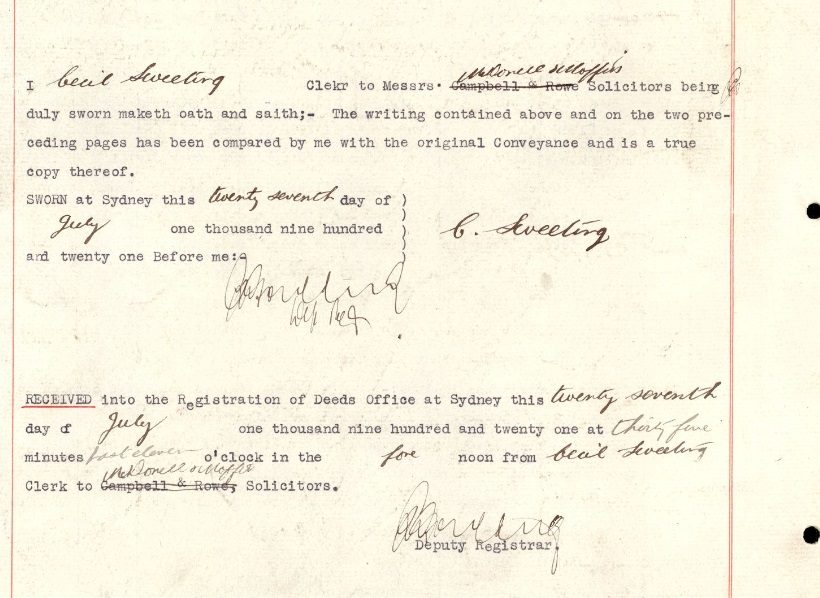 I Cecil Sweeting Clekr to Messrs. McDonell & Moffitt Campbell & Rowe Solicitors being
duly sworn maketh oath and saith;- The writing contained above and on the two pre-
ceding pages has been compared by me with the original Conveyance and is a true
copy thereof.
SWORN at Sydney this twenty seventh day of )
July one thousand nine hundred ) C. Sweeting
and twenty one Before me: )
Dep Reg
RECEIVED into the Registration of Deeds Office at Sydney this twenty seventh
day of July one thousand nine hundred and twenty one at thirty five
minutes past eleven o'clock in the fore noon from Cecil Sweeting
Clerk to McDonell & Moffitt Campbell & Rowe, Solicitors.
Deputy Registrar.